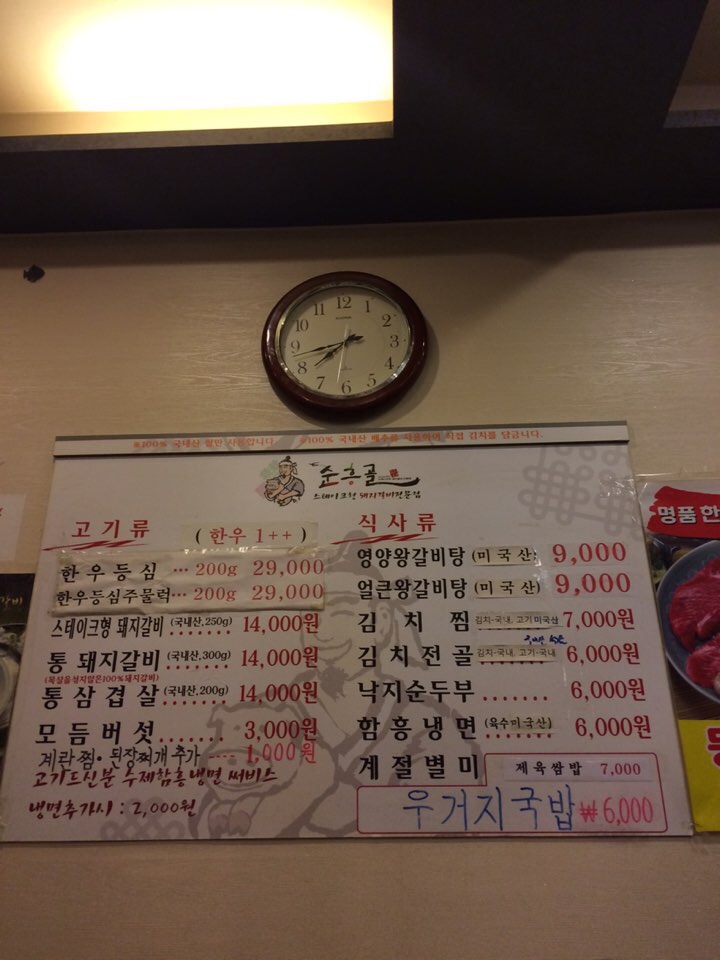 12 1 2 3 4 5 6 7 8 9 10 11
※100% 국내산 쌀만 사용합니다. ※100% 국내산 배추를 사용하여 직접 김치를 담급니다.
순흥골
스테이크형 돼지갈비전문점
고기류 (한우 1++)
한우등심 ··· 200g 29,000
한우등심주물럭 ··· 200g 29,000
스테이크형 돼지갈비 (국내산,250g) 14,000원
통 돼지갈비 (국내산,300g) 14,000원
(목살을섞지않은100%돼지갈비)
통삼겹살 (국내산,200g) 14,000원
모듬버섯 ....... 3,000원
계란찜·된장찌개 추가 ---- 1,000원
고기드신분 수제함흥냉면 써비스
냉면추가시 : 2,000원
식사류
영양왕갈비탕 (미국산) 9,000
얼큰왕갈비탕 (미국산) 9,000
김치찜 김치-국내, 고기미국산 7,000원
김치전골 김치-국내, 고기-국내 6,000원
낙지순두부 ....... 6,000원
함흥냉면 (육수미국산) 6,000원
계절별미 제육쌈밥 7,000
우거지국밥 ₩6,000
명품한